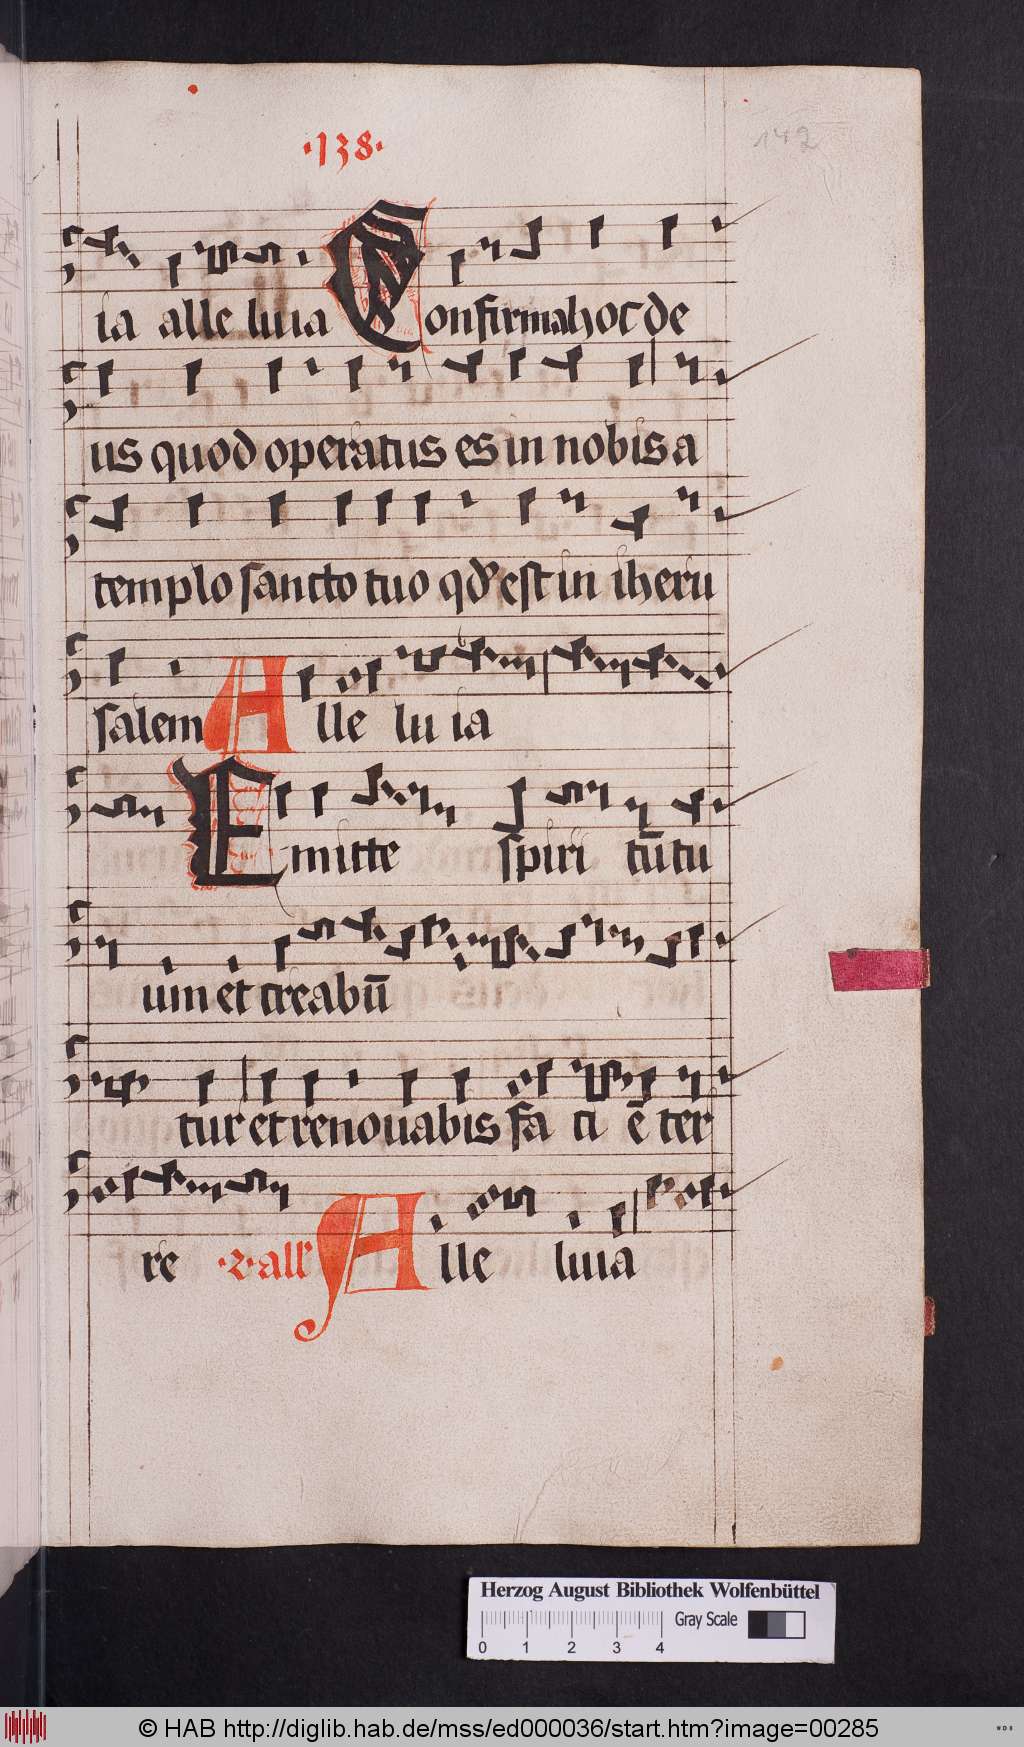 ·138·
142
ia alle luia Confirma hoc de
us quod operatus es in nobis a
templo sancto tuo qd̓ est in iheru
salem Alle lu ia
Emitte spiri tū tu
um et creabū
tur et renouabis fa ci ē ter
re ·2· all' Alle luia
Herzog August Bibliothek Wolfenbüttel
0 1 2 3 4 Gray Scale
© HAB http://diglib.hab.de/mss/ed000036/start.htm?image=00285